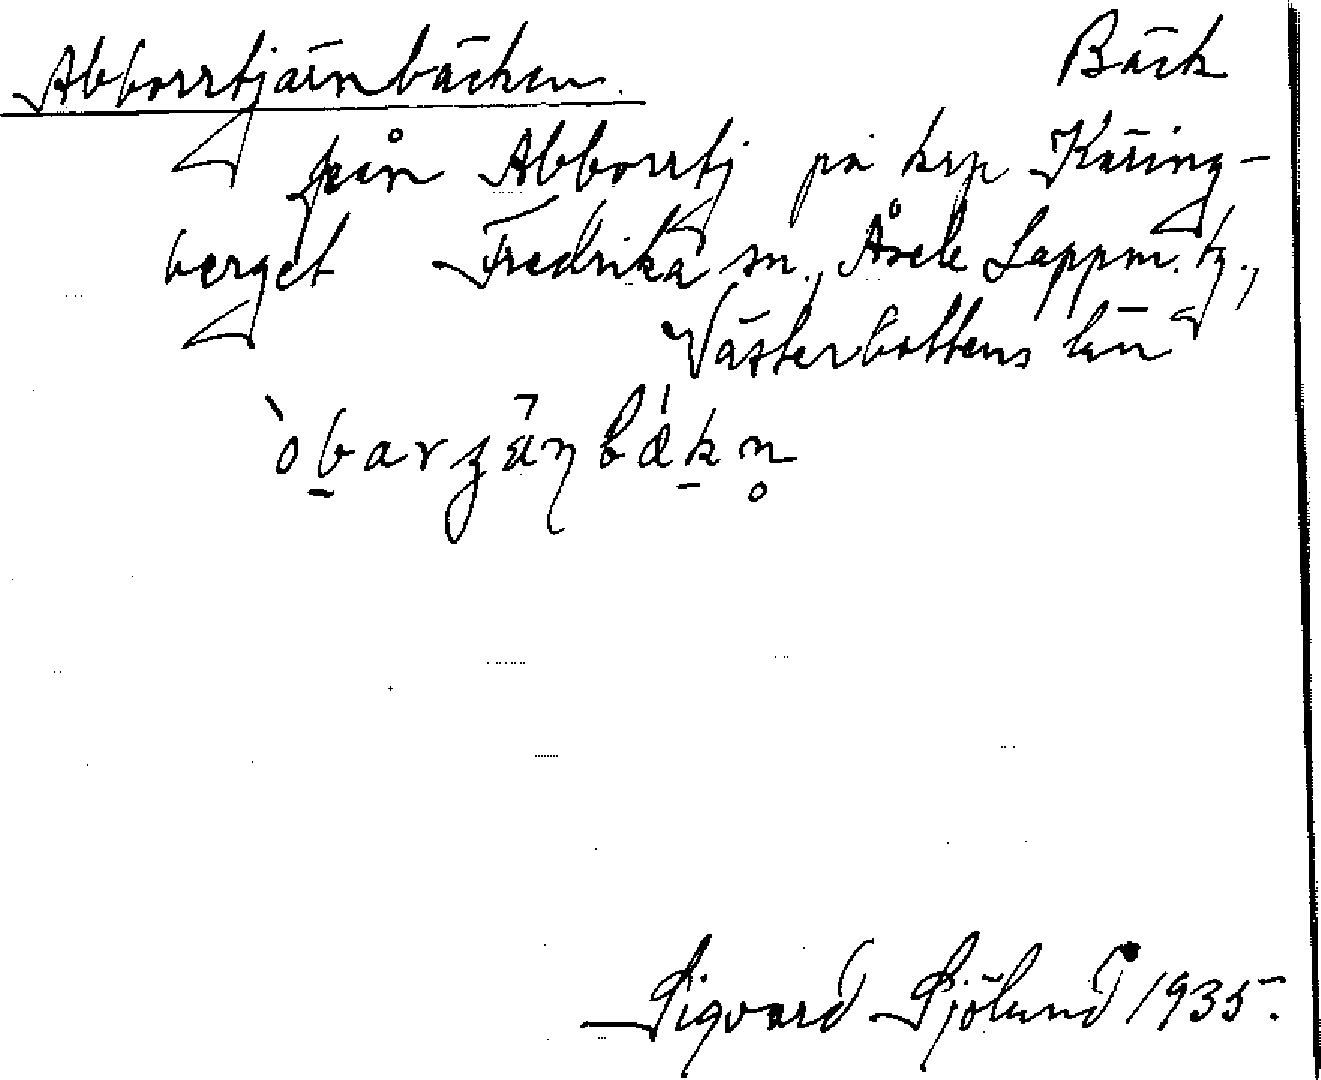 Abborrtjärnbäcken. Bäck
från Abborrtj på krp Käring-
berget Fredrika sn., Åsele Lappm. tg.,
Västerbottens län
Sigvard Sjölund 1935.